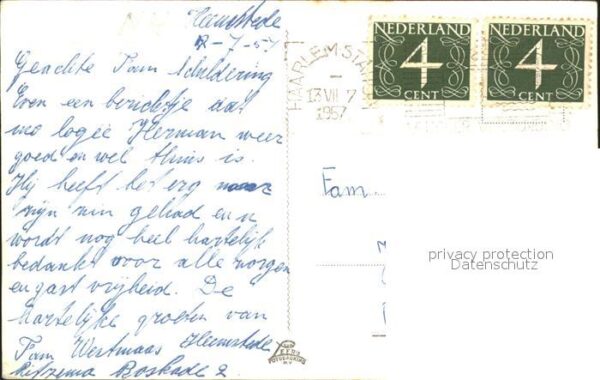 Heemstede
12-7-57
Geachte Fam Schuldering
Even een berichtje dat
uw logeé Herman weer
goed en wel thuis is.
Hij heeft het erg naar
zijn zin gehad en u
wordt nog heel hartelijk
bedankt voor alle zorgen
en gastvrijheid. De
hartelijke groeten van
Fam Westmaas Heemstede
Ritzema Boskade 2
NEDERLAND
4
CENT
NEDERLAND
4
CENT
HAARLEM STA
13 VII 7
1957
Fam
privacy protection
Datenschutz